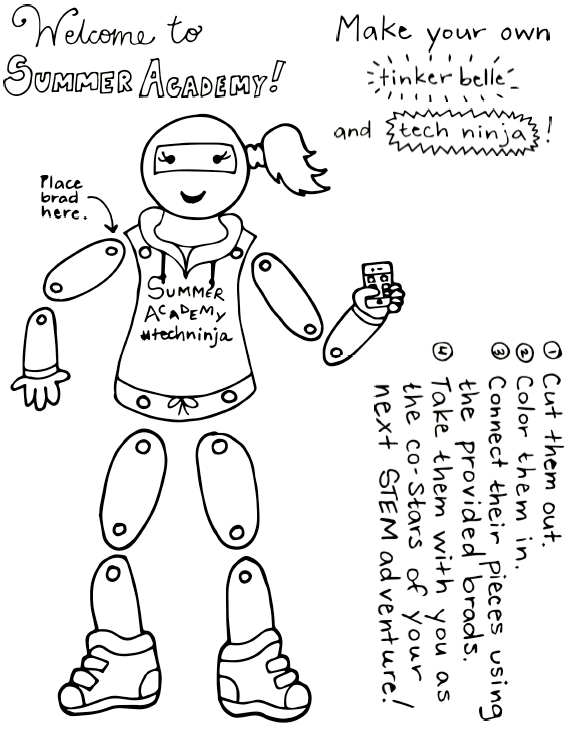 Welcome to
SUMMER ACADEMY!
Make your own
tinker belle
and tech ninja!
Place
brad
here.
SUMMER
ACADEMY
#techninja
① Cut them out.
② Color them in.
③ Connect their pieces using
the provided brads.
④ Take them with you as
the co-stars of your
next STEM adventure!